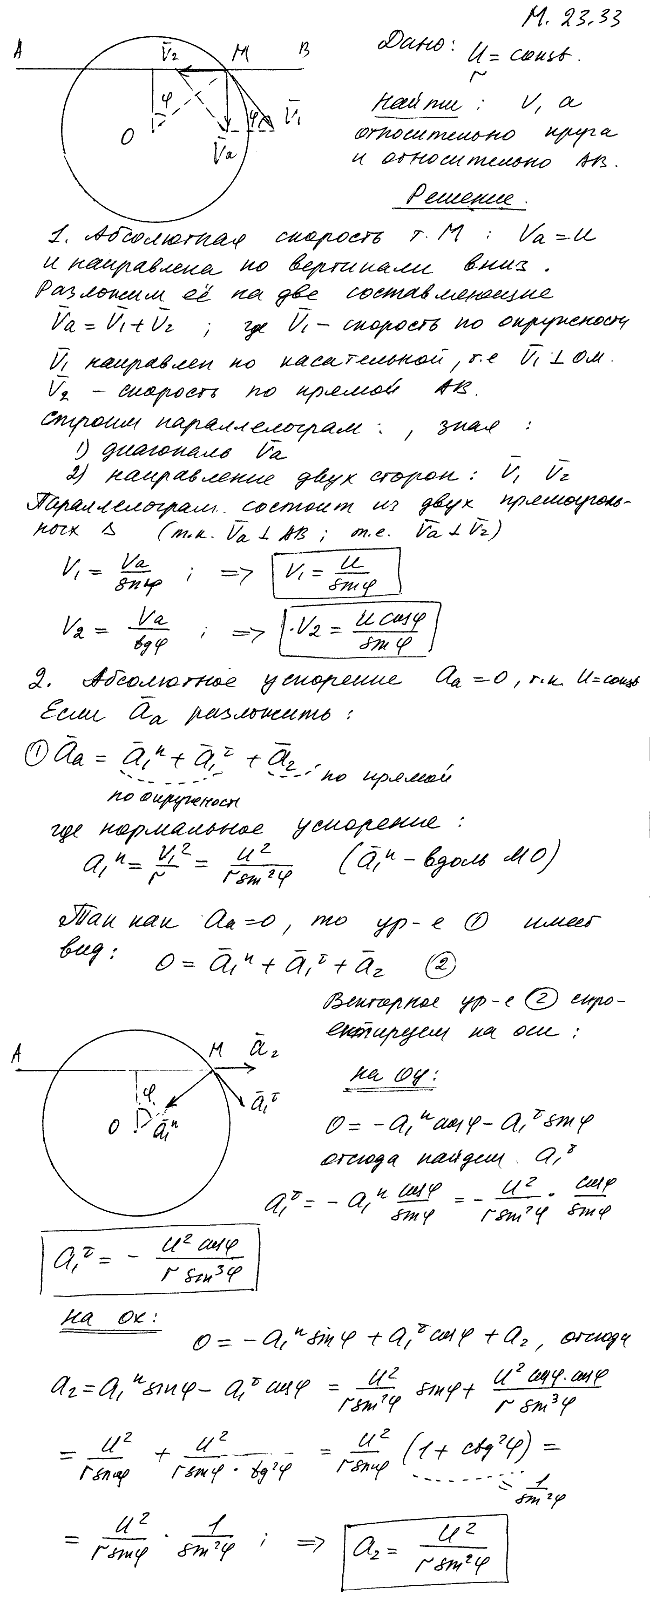 М. 23.33
A V̄₂ M B
φ φ V̄₁
O V̄a
Дано: U = const.
r
Найти: V, a
относительно круга
и относительно AB.
Решение.
1. Абсолютная скорость т. М : Va = U
и направлена по вертикали вниз.
Разложим её на две составляющие
V̄a = V̄₁ + V̄₂ ; где V̄₁ – скорость по окружности
V̄₁ направлен по касательной, т.е V̄₁ ⊥ ОМ.
V̄₂ – скорость по прямой AB.
Строим параллелограм. , зная :
1) диагональ V̄a
2) направление двух сторон: V̄₁ V̄₂
Параллелограм. состоит из двух прямоуголь-
ных Δ (т.к. V̄a ⊥ AB ; т.е. V̄a ⊥ V̄₂)
V₁ = Va/sinφ ; => V₁ = U/sinφ
V₂ = Va/tgφ ; => V₂ = U cosφ/sinφ
2. Абсолютное ускорение aa = 0, т.к. U = const
Если āa разложить :
① āa = ā₁ⁿ + ā₁^τ + ā₂ по прямой
по окружности
где нормальное ускорение :
a₁ⁿ = V₁²/r = U²/r sin²φ (ā₁ⁿ – вдоль МО)
Так как aa = 0, то ур-е ① имеет
вид: 0 = ā₁ⁿ + ā₁^τ + ā₂ ②
Векторное ур-е ② спро-
ектируем на оси :
A M ā₂
φ ā₁^τ
O ā₁ⁿ
на Oy:
0 = – a₁ⁿ cosφ – a₁^τ sinφ
отсюда найдем a₁^τ
a₁^τ = – a₁ⁿ cosφ/sinφ = – U²/r sin²φ · cosφ/sinφ
a₁^τ = – U² cosφ/r sin³φ
на Ox:
0 = – a₁ⁿ sinφ + a₁^τ cosφ + a₂, отсюда
a₂ = a₁ⁿ sinφ – a₁^τ cosφ = U²/r sin²φ sinφ + U² cosφ·cosφ/r sin³φ
= U²/r sinφ + U²/r sinφ · tg²φ = U²/r sinφ (1 + ctg²φ) =
= 1/sin²φ
= U²/r sinφ · 1/sin²φ ; => a₂ = U²/r sin²φ